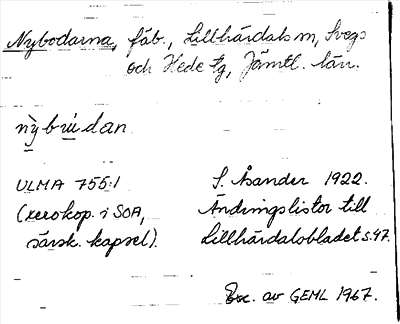 Nybodarna, fäb., Lillhärdals sn, Svegs
och Hede tg, Jämtl. län.
nỳbu̠dan
ULMA 755:1 S. Åsander 1922.
(xerokop. i SOA, Ändringslistor till
särsk. kapsel). Lillhärdalsbladet s. 47.
Exc. av GEML 1967.